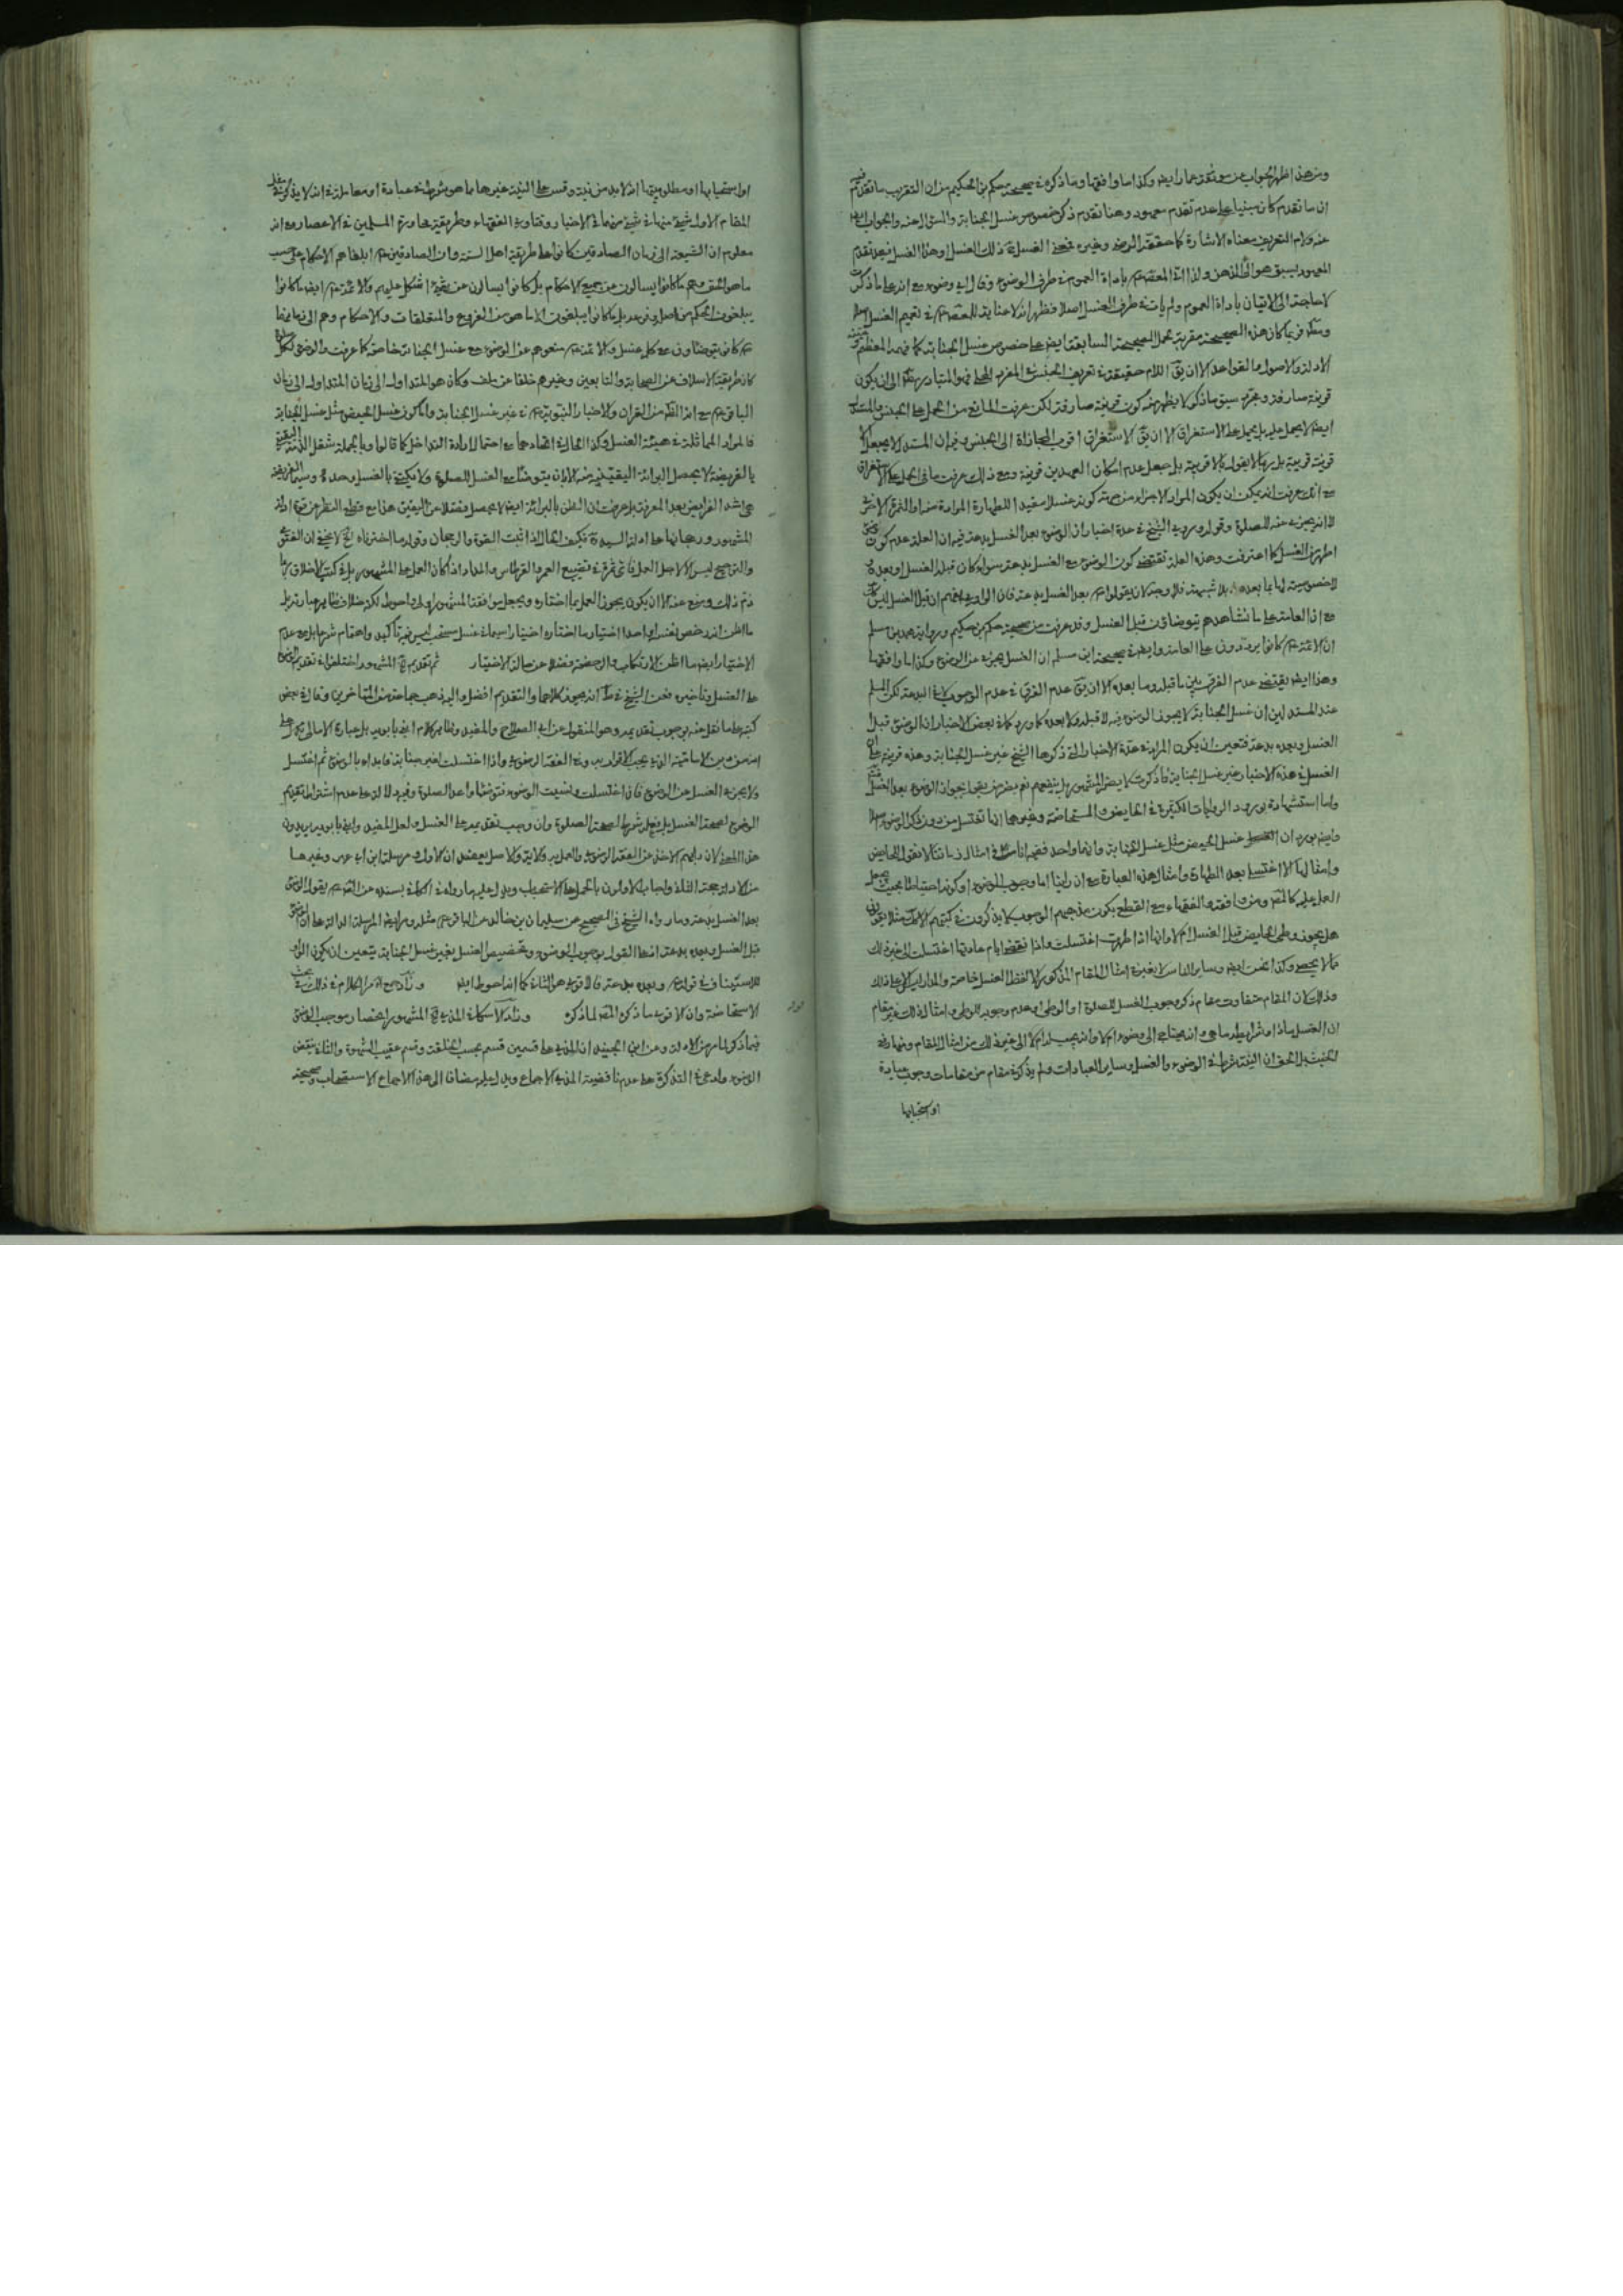 ومن هذا ظهر الجواب عن موثقة عمار ايضا وكذا ما وافقها وما ذكره في صحيحة حكم بن الحكيم من ان التقريب ما تقدم
ان ما تقدم كان مبنيا على عدم تقدم معهود وهنا تقدم ذكر خصوص غسل الجنابة والسؤال عنه والجواب
عنه ولام التعريف معناه الاشارة كما حققه الرضي وغيره الغسل ذلك الغسل وهذا الغسل فبعد تقدم
المعهود يسبق هو الى الذهن ولذا اتى المعصوم باداة العموم في طرف الوضوء وقال اي وضوء مع انه على ما ذكرت
لا حاجة الى الاتيان باداة العموم ولم يات في طرف الغسل اصلا فظهر انه لا عناية للمعصوم في تعميم الغسل اصلا
كان هذه الصحيحة مقربة لحمل الصحيحة السابقة ايضا على خصوص غسل الجنابة كما فهمه المعظم
الادلة والاصول والقواعد الا ان يق اللام حقيقة في تعريف الجنس في المفرد المحلى فهو المتبادر الى ان يكون
قرينة صارفة ومجرد سبق ماذكر لا يظهر منه كون قرينة صارفة لكن عرفت المانع من الحمل على الجنس والمستدل
ايضا لا يحمل عليه بل يحمل على الاستغراق الا ان يق الاستغراق اقرب المجازاة الى الجنس وفيه ان المستدل لا يجعل
قرينة قريبة بل ربما لا يقول بالاقربية بل جعل عدم امكان العهد من قرينة ومع ذلك عرفت ما في الحمل على الاستغراق
مع انك عرفت انه يمكن ان يكون المراد الاجزاء من جهة كونه غسلا مفيدا للطهارة المرادة منه او الثمرة الاخرى
لا انه يجزيه عنه للصلوة وقوله وروى الشيخ في عدة اخبار ان الوضوء بعد الغسل بدعة فيه ان العلة عدم كون
اطهر من الغسل كما اعترفت وهذه العلة تقتضي كون الوضوء مع الغسل بدعة سواء كان قبل الغسل او بعده
لا خصوصية لها بما بعده بلا شبهة فلا وجه لان يقولوا بعد الغسل بدعة فان الراوي
مع ان العامة على ما نشاهدهم يتوضاؤن قبل الغسل وقد عرفت من صحيحة حكم بن حكيم ورواية محمد بن مسلم
ان الائمة كانوا يردون على العامة وايضا في صحيحة ابن مسلم ان الغسل يجزيه عن الوضوء وكذا ما وافقها
وهذا ايضا يقتضي عدم الفرق بين ما قبله وما بعده الا ان يق عدم الفرق في عدم الوجوب لا في البدعة لكن المسلم
عند المستدلين ان غسل الجنابة لا يجوز الوضوء فيه لا قبله ولا بعده كما ورد في بعض الاخبار ان الوضوء قبل
الغسل وبعده بدعة فتعين ان يكون المراد في عدة الاخبار التي ذكرها الشيخ غير غسل الجنابة وهذه قرينة على ان
الغسل في هذه الاخبار غير غسل الجنابة فما ذكرت لا يضر المشهور بل ينفعهم نعم يضر من يقول بجواز الوضوء بعد الغسل
واما استشهاده بورود الروايات الكثيرة في الحايض والمستحاضة وغيرهما انها تغتسل من دون ذكر الوضوء اصلا
وايضا ورد ان غسل الحيض مثل غسل الجنابة وانهما واحد ففيه انا في امثال زماننا لا نقول للحايض
وامثالها الا اغتسلي بعد الطهارة وامثال هذه العبارة مع ان راينا اما وجوب الوضوء او كونه احتياطا بحيث
العمل عليه كالمص ومن وافقه والفقهاء مع القطع بكون مذهبهم الوجوب لا يذكرون في كتبهم الا مثلا يقولون
هل يجوز وطي الحايض قبل الغسل ام لا وانها اذا طهرت اغتسلت واذا انقضى ايام عادتها اغتسلت الى غير ذلك
مما لا يحصى وكذا نحن ايضا وساير الناس لا يغيرن امثال المقام المذكور الا لفظ الغسل خاصة والمدار على ذلك
وذلك لان المقام متفاوت مقام ذكر وجوب الغسل للصلوة او الوطي او عدم وجوبه للوطي وامثال ذلك غير مقام
ان الغسل ماذا وشرايطه ما هي وانه يحتاج الى وضوء ام لا وانه يجب له ام لا الى غير ذلك من امثال المقام
الحق ان النية شرط في الوضوء والغسل وساير العبادات ولم يذكر في مقام من مقامات وجوب عبادة
او استحبابها
او استحبابها او مطلوبيتها انه لا بد من نية وقس على النية غيرها مما هو شرط في عبادة او معاملة في انه لا يذكر في
المقام الاول شيئ منها في شيئ منهما في الاخبار وفتاوى الفقهاء وطريقة محاورة المسلمين في الاعصار مع انه
معلوم ان الشيعة الى زمان الصادقين كانوا على طريقة اهل السنة وان الصادقين ابلغاهم الاحكام على حسب
ما هو الحق وهم ما كانوا يسالون عن جميع الاحكام بل كانوا يسالون عن شيئ اشكل عليهم والائمة ايضا ما كانوا
يبلغون الحكم من اصل وفرعه بل ما كانوا يبلغون الا ما هو من الفروع والمتعلقات والاحكام وهم الى زمانهما
كانوا يتوضاؤن مع كل غسل والائمة منعوهم عن الوضوء مع غسل الجنابة خاصة كما عرفت والوضوء لكل
كان طريقة الاسلاف من الصحابة والتابعين وغيرهم خلفا عن سلف وكان هو المتداول الى زمان المتداول الى زمان
الباقر مع انه الظ من القران والاخبار النبوية في غير غسل الجنابة واما كون غسل الحيض مثل غسل الجنابة
فالمراد المماثلة في هيئة الغسل وكذا الحال في اتحادهما مع احتمال ارادة التداخل كما قالوا وبالجملة شغل الذمة اليقينية
بالفريضة لا يحصل البرائة اليقينية منه الا ان يتوضأ مع الغسل للصلوة ولا يكتفي بالغسل وحده وسيما الفريضة
هي اشد الفرايض بعد المعرفة بل عرفت ان الظن بالبرائة ايضا لا يحصل فضلا عن اليقين هذا مع قطع النظر عن قوة ادلة
المشهور ورجحانها على ادلة السيد فكيف الحال اذا ثبت القوة والرجحان وقوله ما اخترناه الخ لا يخفى ان الفتوى
والترجيح ليس الا لاجل العمل فاي ثمرة في تضييع العمر والقرطاس والمداد اذا كان العمل على المشهور
ذم ذلك ومنع عنه الا ان يكون يجوز العمل بما اختاره ويجعل موافقة المشهور اولى واحوط لكنه خلاف ظاهر عبارته بل
ما اظن انه رخص لنفسه او احدا اختيار ما اختاره اختيارا سيما في غسل مستحب ليس فيه تأكيد واهتمام شرعا بل مع عدم
الاختيار ايضا ما اظن الارتكاب والرخصة فضلا عن حالة الاختيار ثم تقديم المشهور اختلفوا في تقديم الوضوء
على الغسل وتاخيره فعن الشيخ في ط انه يجوز كلاهما والتقديم افضل واليه ذهب جماعة من المتاخرين وقال في بعض
كتبه على ما نقل عنه بوجوب تقديمه وهو المنقول عن ابي الصلاح والمفيد وظاهر كلام ابني بابويه بل عبارة الامالي تدل على
انه من دين الامامية الذي يجب الاقرار به وفي الفقه الرضوي واذا اغتسلت لغير جنابة فابدأ بالوضوء ثم اغتسل
ولا يجزيه الغسل عن الوضوء فان اغتسلت ونسيت الوضوء فتوضأ واعد الصلوة وفيه دلالة على عدم اشتراط تقديم
الوضوء لصحة الغسل بل فعله شرط لصحة الصلوة وان وجب تقديمه على الغسل ولعل المفيد وابني بابويه يريدون
هذا المعنى لان دابهم الاخذ من الفقه الرضوي والعمل به ولاية ولاصل يعضد ان لاول ومرسلة ابن ابي عمير وغيرها
من الادلة حجة الثالث واجاب الاولون بالحمل على الاستحباب ويدل عليه ما رواه في الكافي بسنده عن الص يقول الوضوء
بعد الغسل بدعة وما رواه الشيخ في الصحيح عن سليمان بن خالد عن الباقر مثله ورواية المرسلة الدالة على ان الوضوء
قبل الغسل وبعده بدعة اذ على القول بوجوب الوضوء وتخصيص الغسل بغير غسل الجنابة يتعين ان يكون الواو
للاستيناف في قوله وبعده بدعة فالاقوى هو الثاني كما انه احوط ايضا
الاستحاضة وان الاقوى ما ذكره المص لما ذكره المشهور انحصار موجب الوضوء
فيما ذكر لما مر من الادلة وعن ابن الجنيد ان المذي على قسمين قسم بحسب الخلقة وقسم عقيب الشهوة والثاني ينقض
الوضوء وادعى في التذكرة على عدم ناقضية المذي الاجماع ويدل عليه مضافا الى هذا الاجماع الاستصحاب وصحيحة